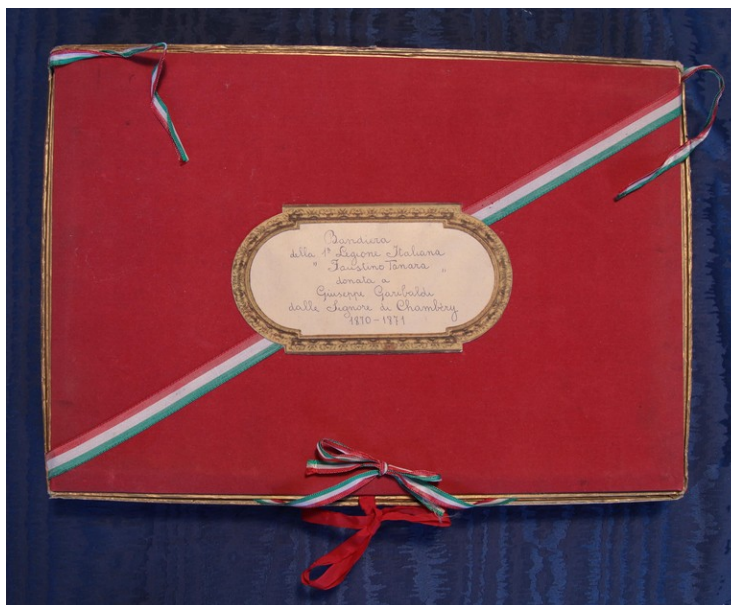 Bandiera
della 1ª Legione Italiana
" Faustino Tanara "
donata a
Giuseppe Garibaldi
dalle Signore di Chambéry
1870-1871